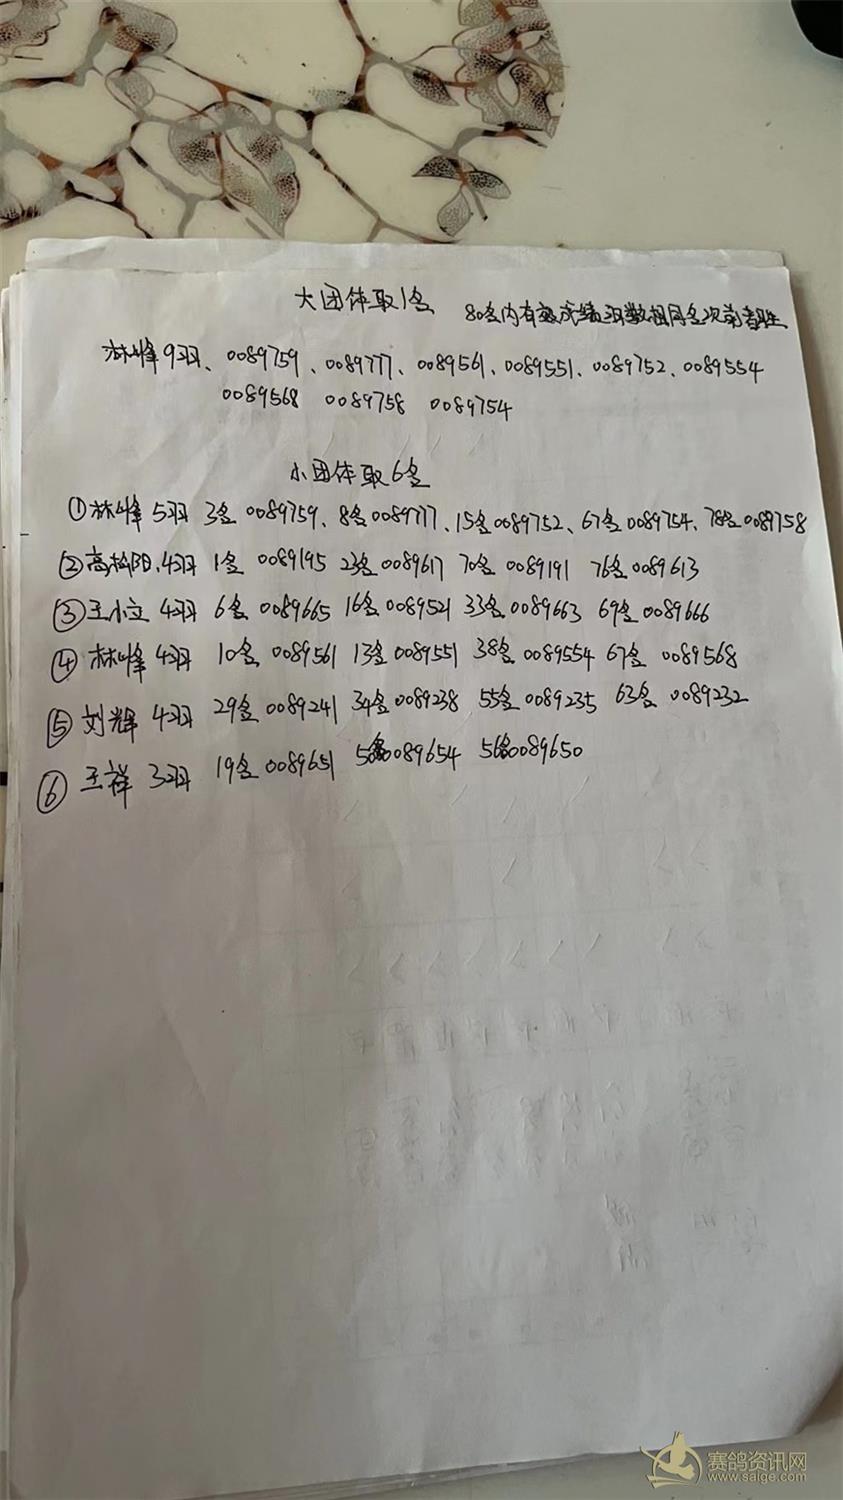 大团体取1名 80名内有效成绩羽数相同名次前者胜
林峰9羽、0089759、0089777、0089561、0089551、0089752、0089554
0089568 0089758 0089754
小团体取6名
①林峰 5羽 3名 0089759、8名0089777、15名0089752、67名0089754、78名0089758
②高松阳.4羽 1名 0089195 23名0089617 70名0089191 76名0089613
③王小立 4羽 6名 0089665 16名0089521 33名0089663 69名0089666
④林峰 4羽 10名 0089561 13名0089551 38名0089554 67名 0089568
⑤刘辉 4羽 29名0089241 34名0089238 55名0089235 63名 0089232
⑥王祥 3羽 19名0089651 50名0089654 56名0089650
赛鸽资讯网
www.saige.com